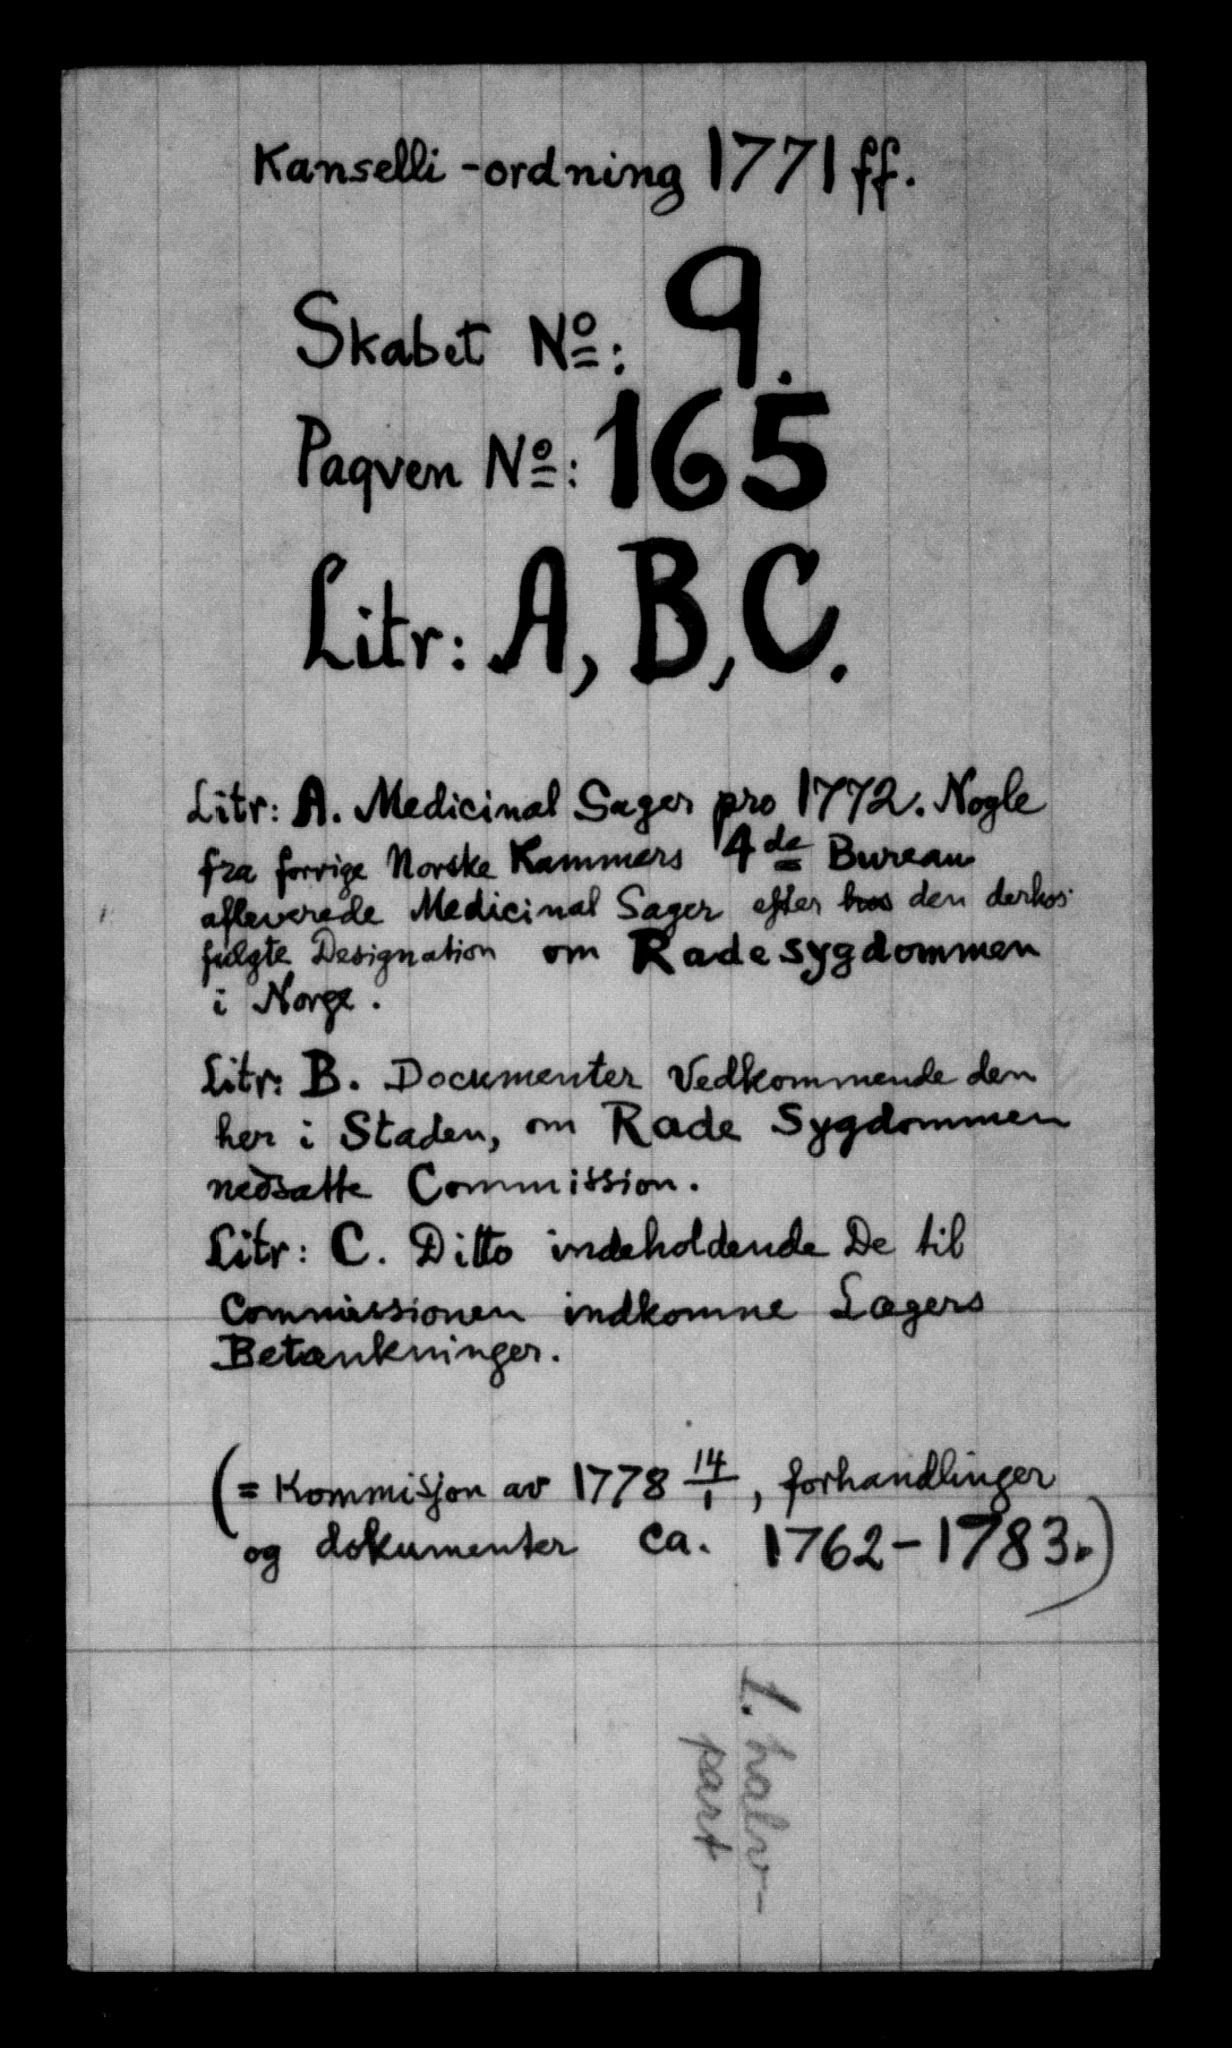 Kanselli-ordning 1771 ff.
Skabet No: 9.
Paqven No: 165
Litr: A, B, C.
Litr: A. Medicinal Sager pro 1772. Nogle
fra forrige Norske Kammers 4de Bureau
afleverede Medicinal Sager efter hos den derhos
fulgte Designation om Radesygdommen
i Norge.
Litr: B. Documenter Vedkommende den
her i Staden, om Rade Sygdommen
nedsatte Commission.
Litr: C. Ditto indeholdende De til
Commissionen indkomne Lægers
Betænkninger.
(= Kommisjon av 1778 14/1, forhandlinger
og dokumenter ca. 1762-1783.)
1. halv-
part